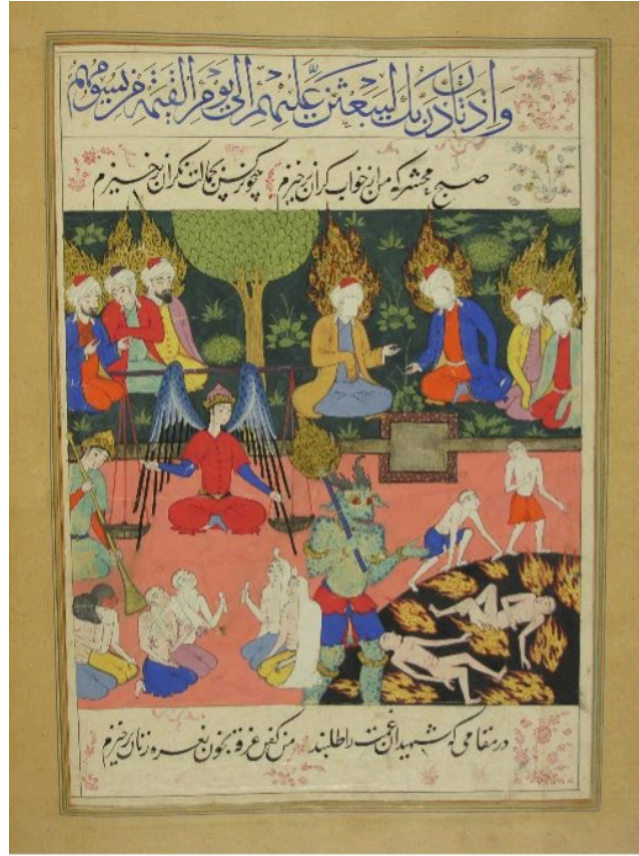 واذ تاذن ربك ليبعثن عليهم الى يوم القيمة من يسومهم
صبح محشر که من از خواب کران برخیزم همچو نرکس بجمالت نکران برخیزم
در مقامی که شهیدان غمت را طلبند من کفن غرقه بخون نعره زنان برخیزم